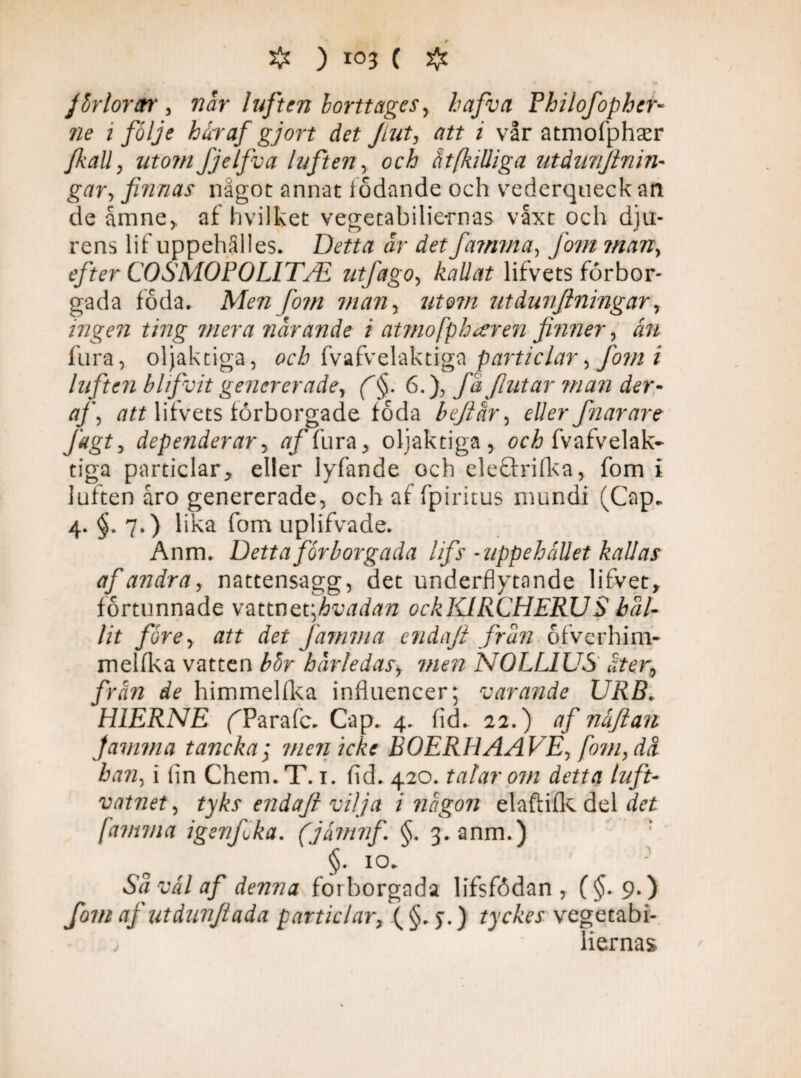 ☆ ) 103 ( ☆
förlorar, når luften borttages, hafva Philosopher-
ne i följe håraf gjort det ſlut, att i vår atmoſphær
ſkall, utom ſjelfva luften, och åtſkilliga utdunſtnin-
gar, finnas något annat födande och vederqueckan
de åmne, af hvilket vegetabiliernas våxt och dju-
rens lif uppehålles. Detta år det ſamma, ſom man,
efter COSMOPOLITÆ utſago, kallat lifvets förbor-
gada föda. Men ſom man, utom utdunſtningar,
ingen ting mera nårande i atmoſphæren finner, ån
ſura, oljaktiga, och ſvafvelaktiga particlar, ſom i
luften blifvit genererade, (§. 6.), ſå ſlutar man der-
af, att lifvets förborgade föda beſtår, eller ſnarare
ſagt, dependerar, af ſura, oljaktiga, och ſvafvelak-
tiga particlar, eller lyſande och electriſka, ſom i
luften åro genererade, och af ſpiritus mundi (Cap.
4. §. 7.) lika ſom uplifvade.
Anm. Detta förborgada lifs-uppehållet kallas
af andra, nattensagg, det underflytande lifvet,
förtunnade vattnet; hvadan ock KIRCHERUS hål-
lit före, att det ſamma endaſt från öfverhim-
melſka vatten bör hårledas, men NOLLIUS åter,
från de himmelſka influencer; varande URB.
HIERNE (Parafc. Cap. 4. ſid. 22.) af nåſtan
ſamma tancka; men icke BOERHAAVE, ſom, då
han, i ſin Chem. T. 1. ſid. 420. talar om detta luft-
vatnet, tyks endaſt vilja i någon elaſtiſk del det
ſamma igenſöka. (jåmnf. §. 3. anm.)
§. 10.
Så vål af denna förborgada lifsfödan, (§. 9.)
ſom af utdunſtada particlar, (§. 5.) tyckes vegetabi-
liernas